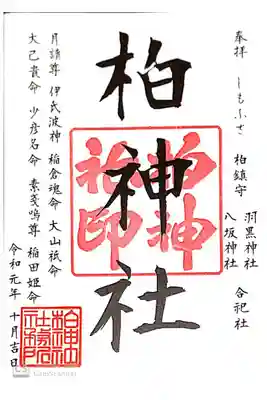 奉拝 しもふさ 柏鎮守
羽黒神社
八坂神社
合祀社
柏神社
柏神社印
月讀尊 伊氏波神 稲倉魂命 大山祇命
大己貴命 少彦名命 素戔嗚尊 稲田姫命
令和元年 十月吉日